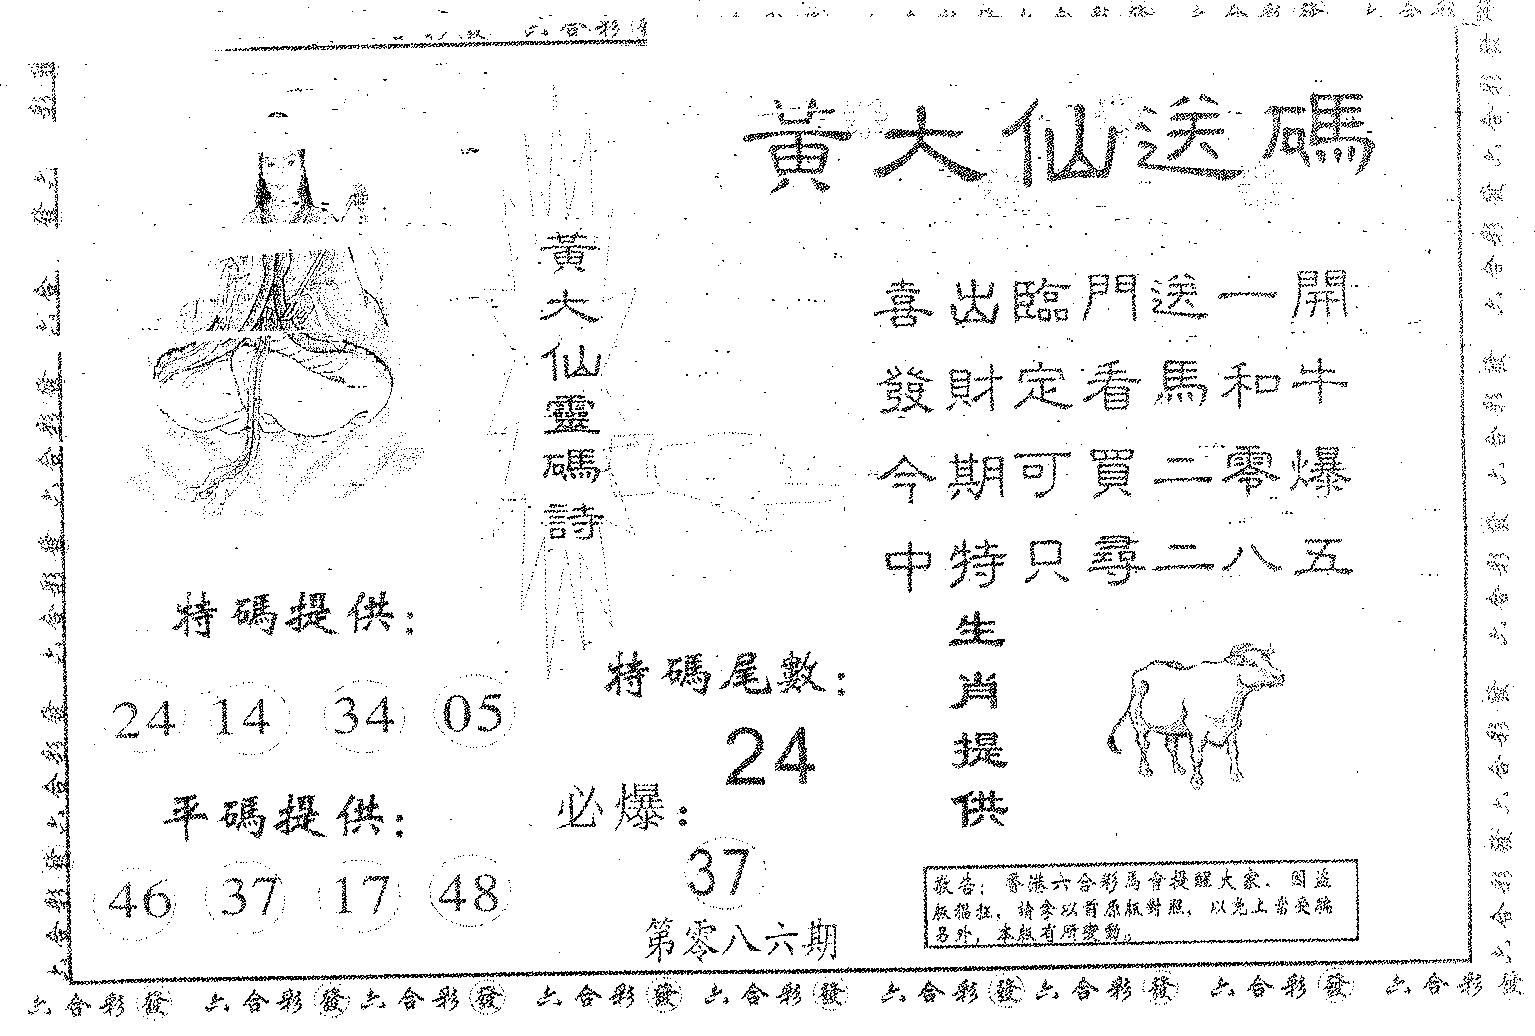 黃大仙送碼
黃大仙靈碼詩
喜出臨門送一開
發財定看馬和牛
今期可買二零爆
中特只尋二八五
特碼提供：
24 14 34 05
平碼提供：
46 37 17 48
特碼尾數：
24
必爆：
37
第零八六期
生肖提供
敬告：香港六合彩馬會提醒大家．因盜
版猖狂．請拿以前原版對照．以免上當受騙
另外，本版有所變動。
六合彩發 六合彩發 六合彩發 六合彩發 六合彩發 六合彩發 六合彩發 六合彩發 六合彩發